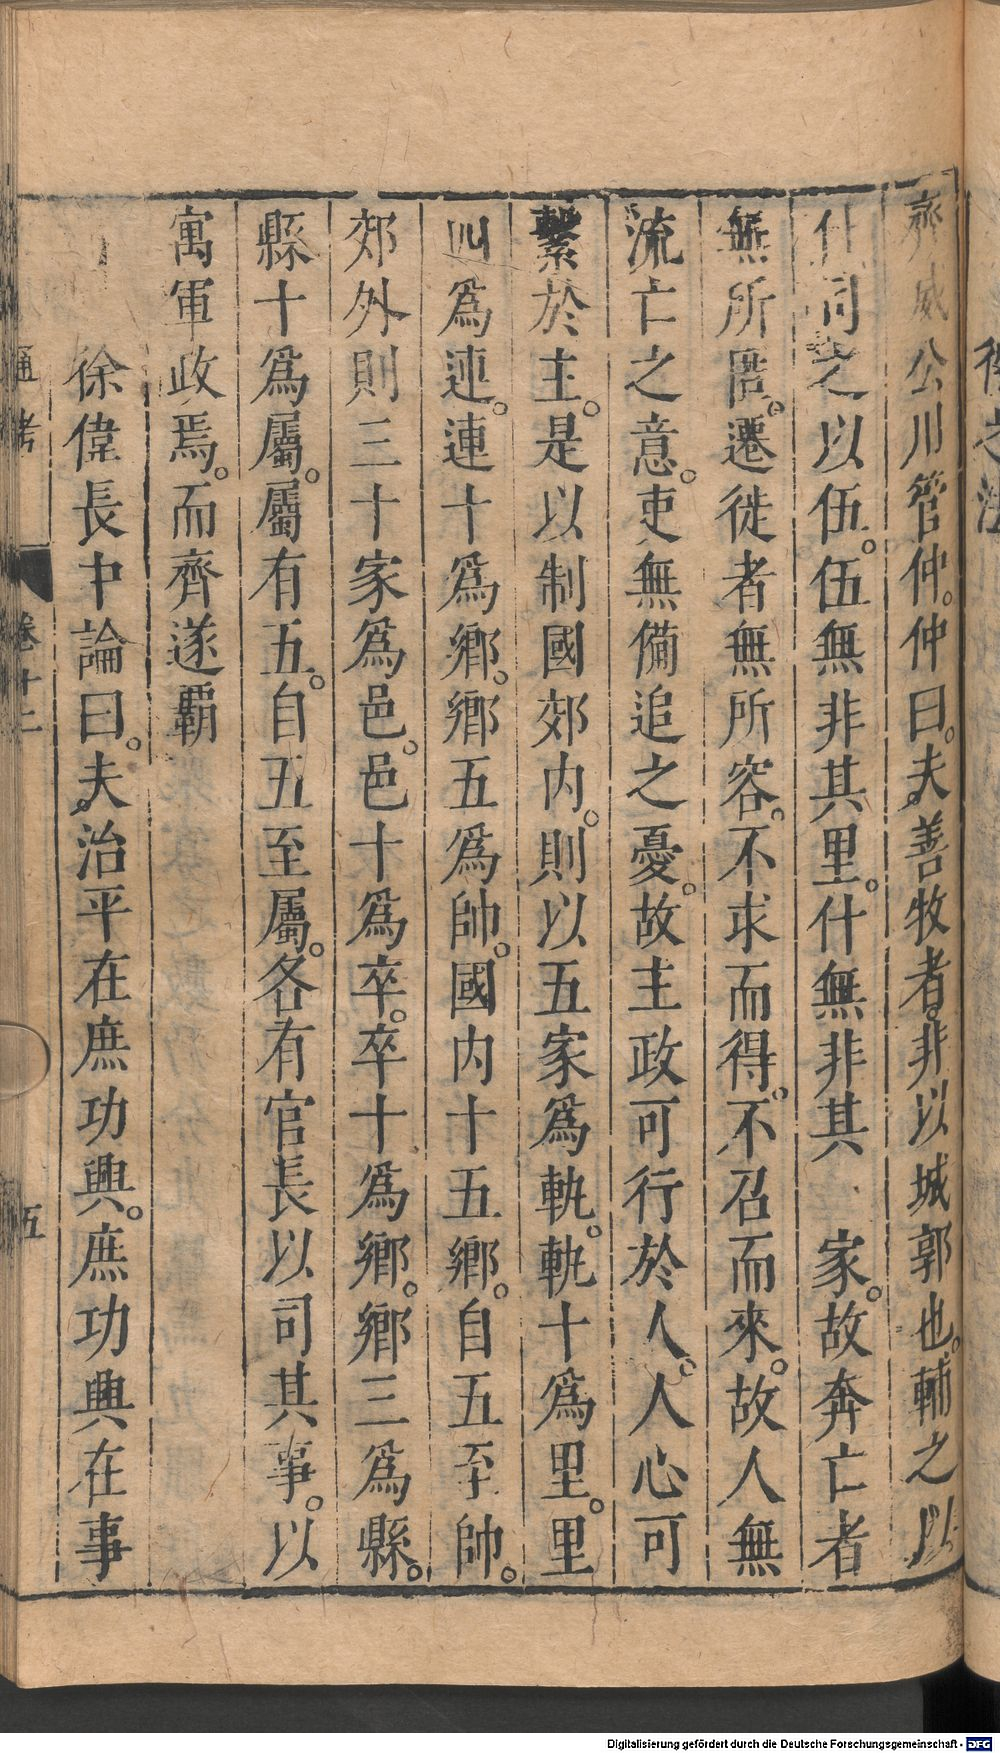 齊威公用管仲。仲曰。夫善牧者。非以城郭也。輔之以
什。伺之以伍。伍無非其里。什無非其 家。故奔亡者
無所匿。遷徙者無所容。不求而得。不召而來。故人無
流亡之意。吏無備追之憂。故主政可行於人。人心可
繫於主。是以制國郊內。則以五家爲軌。軌十爲里。里
四爲連。連十爲鄉。鄉五爲帥。國内十五鄉。自五至帥。
郊外則三十家爲邑。邑十爲卒。卒十爲鄉。鄉三爲縣。
縣十爲屬。屬有五。自五至屬。各有官長以司其事。以
寓軍政焉。而齊遂覇
徐偉長中論曰。夫治平在庶功興。庶功興在事
通考 卷十二 五
Digitalisierung gefördert durch die Deutsche Forschungsgemeinschaft - DFG